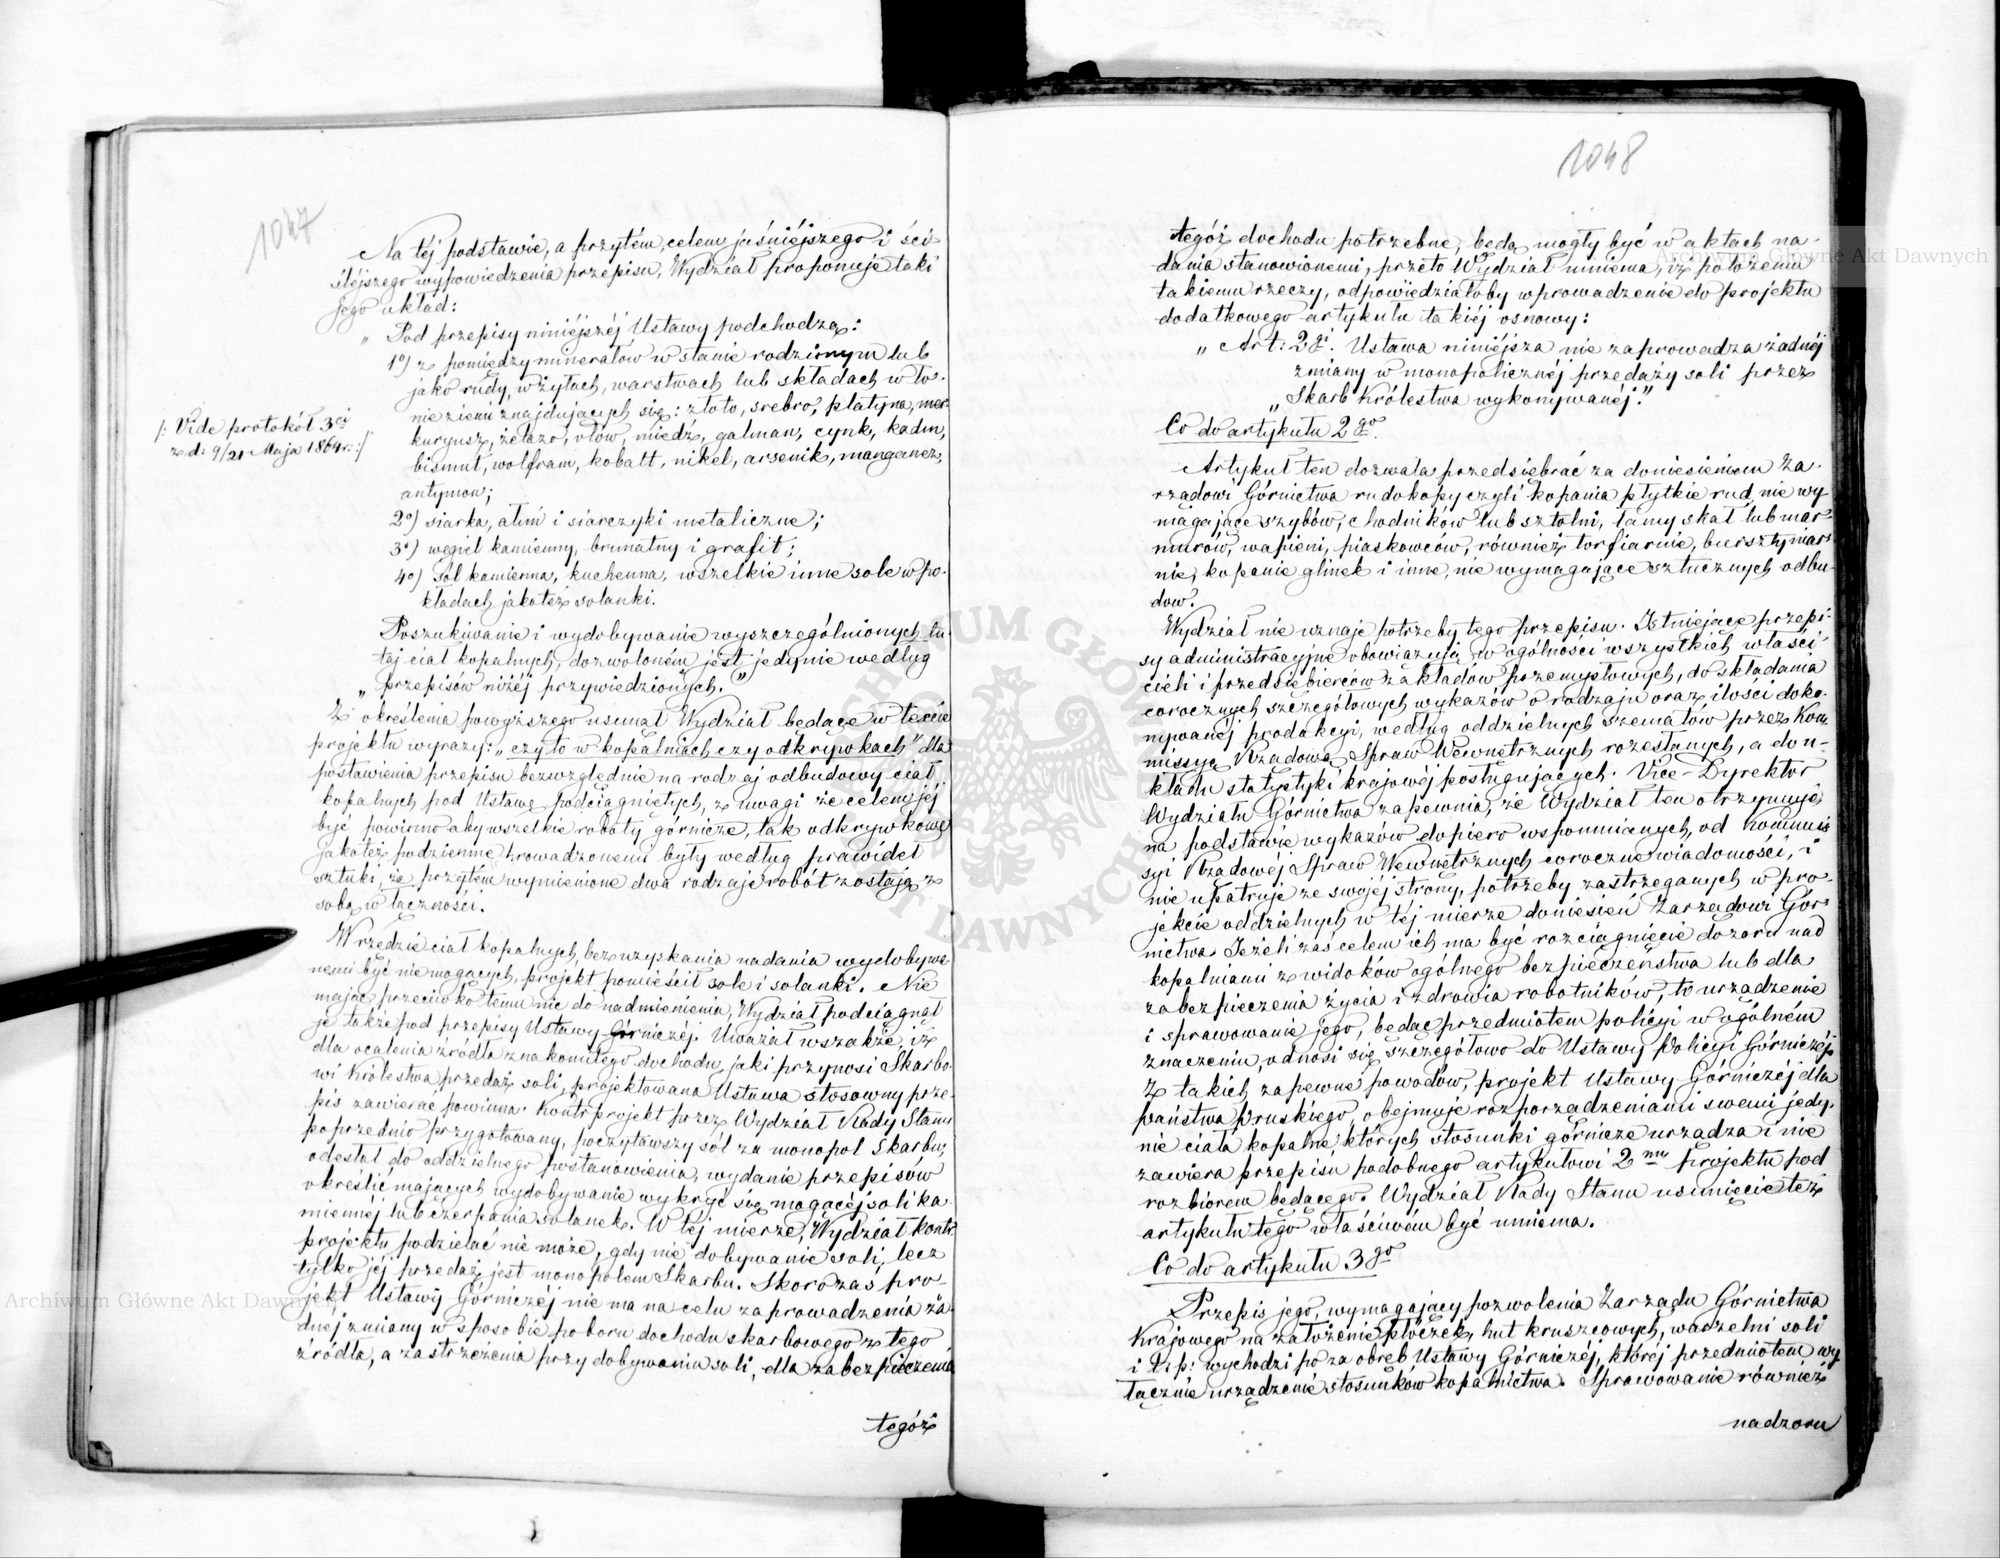 1047
Na téj podstawie, a przytém, celem jaśniéjszego i ści-
śléjszego wypowiedzenia przepisu, Wydział proponuje taki
jego układ:
„ Pod przepisy niniéjszéj Ustawy podchodzą:
1o) z pomiędzy minerałów w stanie rodzimym lub
jako rudy, w żyłach, warstwach lub składach w ło-
nie ziemi znajdujących się: złoto, srebro, platyna, mer-
kuryusz, żelazo, ołów, miedź, galman, cynk, kadm,
bismut, wolfram, kobalt, nikel, arsenik, manganez,
antymon;
/: Vide protokół 3ci
z d: 9/21 Maja 1864r. :/
2o) siarka, ałun i siarczyki metaliczne;
3o) węgiel kamienny, brunatny i grafit;
4o) sól kamienna, kuchenna, wszelkie inne sole w po-
kładach jakotéż solanki.
Poszukiwanie i wydobywanie wyszczególnionych tu-
taj ciał kopalnych, dozwoloném jest jedynie według
„ przepisów niżéj przywiedzionych.”
Z określenia powyższego usunął Wydział będące w texcie
projektu wyrazy: „czy to w kopalniach czy odkrywkach” dla
postawienia przepisu bezwzględnie na rodzaj odbudowy ciał
kopalnych pod Ustawę podciągniętych, z uwagi że celem jéj
być powinno aby wszelkie roboty górnicze, tak odkrywkowe
jakotéż podziemne prowadzonemi były według prawideł
sztuki, że przytém wymienione dwa rodzaje robót zostają z
sobą w łączności.
W rzędzie ciał kopalnych, bez uzyskania nadania wydobywa-
nemi być niemogących, projekt pomieścił sole i solanki. Nie
mając przeciwko temu nic do nadmienienia, Wydział podciągnął
je także pod przepisy Ustawy Górniczéj. Uważał wszakże, iż
dla ocalenia źródła znakomitego dochodu, jaki przynosi Skarbo-
wi Królestwa przedaż soli, projektowana Ustawa stosowny prze-
pis zawierać powinna. Kontrprojekt przez Wydział Rady Stanu
poprzednio przygotowany, poczytawszy sól za monopol Skarbu,
odesłał do oddzielnego postanowienia, wydanie przepisów
określić mających wydobywanie wykryć się mogącéj soli ka-
miennéj lub czerpania solanek. W téj mierze, Wydział kontr-
projektu podzielać nie może, gdy nie dobywanie soli, lecz
tylko jéj przedaż jest monopolem Skarbu. Skoro zaś pro-
jekt Ustawy Górniczéj nie ma na celu zaprowadzenia ża-
dnéj zmiany w sposobie poboru dochodu skarbowego z tego
źródła, a zastrzeżenia przy dobywaniu soli, dla zabezpieczenia
tegóż
1048
tegóż dochodu potrzebne, będą mogły być w aktach na-
dania stanowionemi, przeto Wydział mniema, iż położeniu
takiemu rzeczy, odpowiedziałoby wprowadzenie do projektu
dodatkowego artykułu takiéj osnowy:
„ Art: 2gi. Ustawa niniéjsza nie zaprowadza żadnéj
zmiany w monopolicznéj przedaży soli przez
„ Skarb Królestwa wykonywanéj.”
Co do artykułu 2go.
Artykuł ten dozwala przedsiębrać za doniesieniem Za-
rządowi Górnictwa rudokopy czyli kopania płytkie rud, nie wy-
magające szybów, chodników lub sztolni, łamy skał lub mar-
murów, wapieni, piaskowców, również torfiarnie, bursztyniar-
nie, kopanie glinek i inne, nie wymagające sztucznych odbu-
dow.
Wydział nie uznaje potrzeby tego przepisu. Istniejące przepi-
sy administracyjne obowiązują w ogólności wszystkich właści-
cieli i przedsiębierców zakładów przemysłowych, do składania
corocznych szczegółowych wykazów o rodzaju oraz ilości doko-
nywanéj produkcyi, według oddzielnych szematów przez Kom-
missyą Rządową Spraw Wewnętrznych rozesłanych, a do u-
kładu statystyki krajowéj posługujących. Vice-Dyrektor
Wydziału Górnictwa zapewnia, że Wydział ten otrzymuje
na podstawie wykazów dopiero wspomnianych, od Kommis-
syi Rządowéj Spraw Wewnętrznych coroczne wiadomości, i
nie upatruje ze swojéj strony, potrzeby zastrzeganych w pro-
jekcie oddzielnych w téj mierze doniesień Zarządowi Gór-
nictwa. Jeżeli zaś celem ich ma być rozciągnięcie dozoru nad
kopalniami z widoków ogólnego bezpieczeństwa lub dla
zabezpieczenia życia i zdrowia robotników, to urządzenie
i sprawowanie jego, będąc przedmiotem policyi w ogólném
znaczeniu, odnosi się szczegółowo do Ustawy Policyi Górniczéj.
Z takich zapewne powodów, projekt Ustawy Górniczéj dla
państwa Pruskiego, obejmuje rozporządzeniami swemi jedy-
nie ciała kopalne, których stosunki górnicze urządza i nie
zawiera przepisu podobnego artykułowi 2mu projektu pod
rozbiorem będącego. Wydział Rady Stanu usunięcie téż
artykułu tego właściwém być mniema.
Co do artykułu 3go
Przepis jego, wymagający pozwolenia Zarządu Górnictwa
Krajowego na założenie płóczek, hut kruszcowych, warzelni soli
i t. p: wychodzi po za obręb Ustawy Górniczéj, któréj przedmiotem wy-
łącznie urządzenie stosunków kopalnictwa. Sprawowanie również
nadzoru
Archiwum Główne Akt Dawnych
Archiwum Główne Akt Dawnych
ARCHIWUM GŁÓWNE AKT DAWNYCH